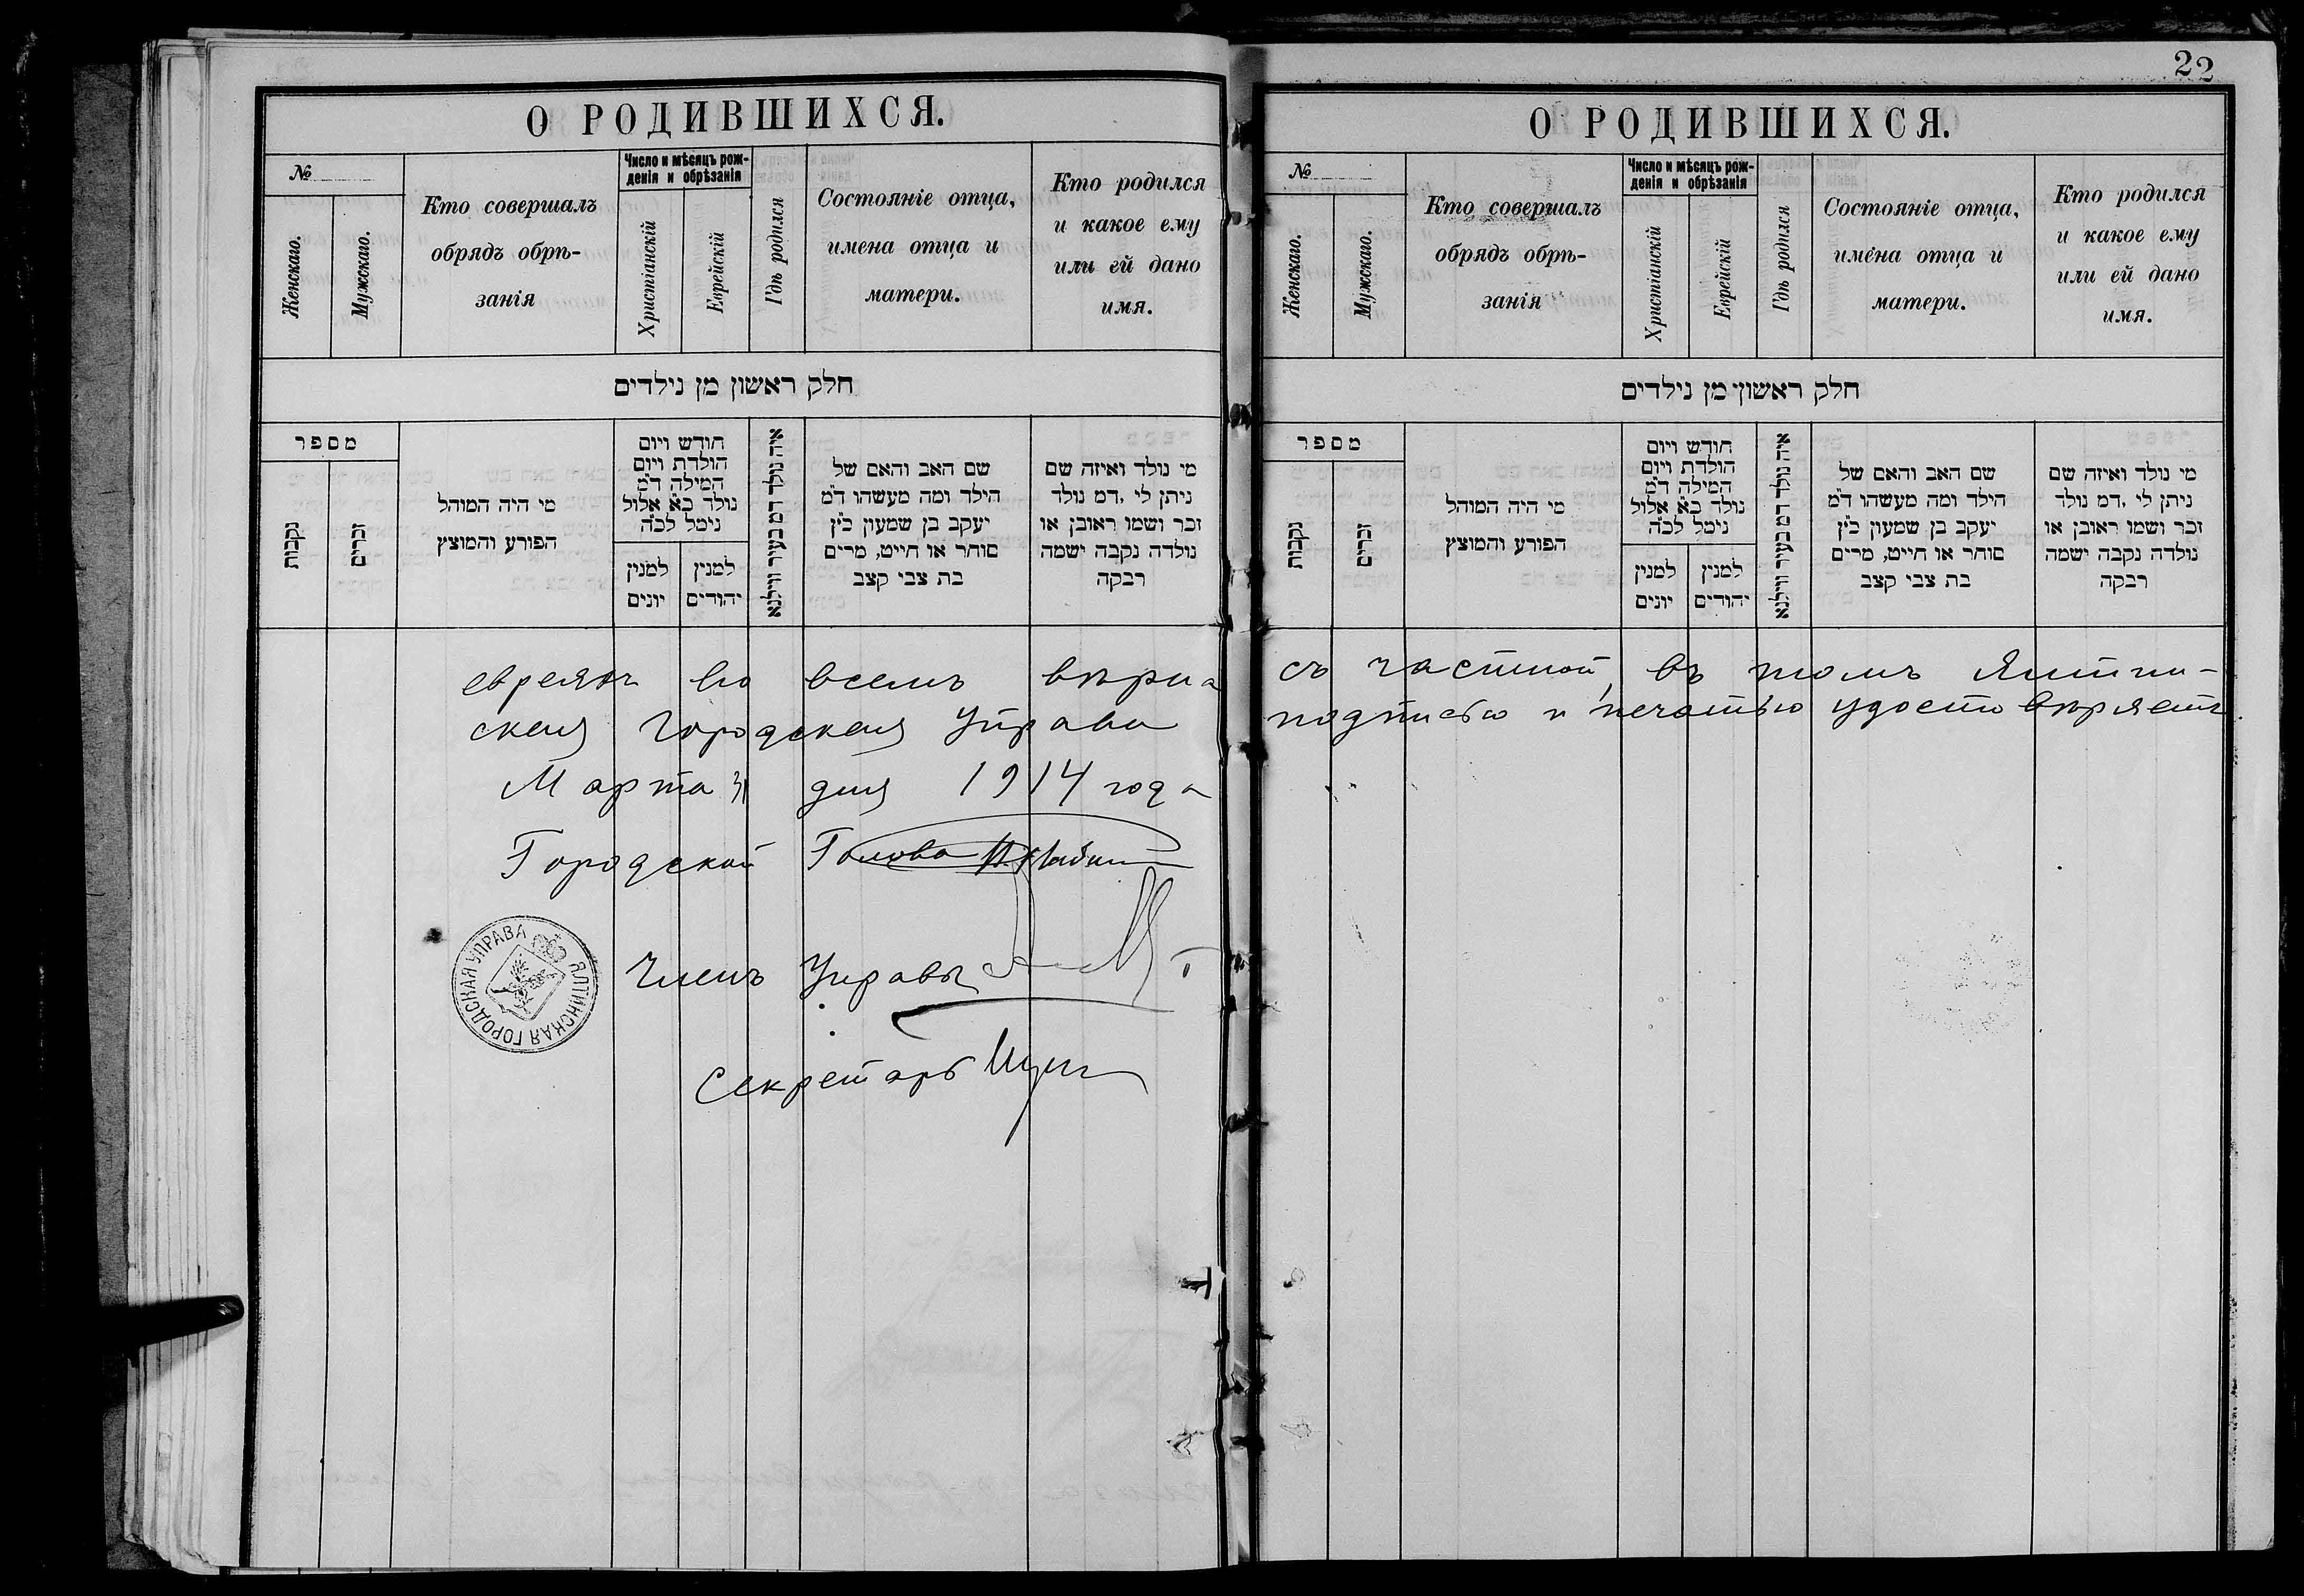 22
О РОДИВШИХСЯ.
№
Женскаго.
Мужскаго.
Кто совершалъ
обрядъ обрѣ-
занія
Число и мѣсяцъ рож-
денія и обрѣзанія
Христіанскій
Еврейскій
Гдѣ родился
Состояніе отца,
имена отца и
матери.
Кто родился
и какое ему
или ей дано
имя.
חלק ראשון מן נילדים
מספר
נקבות
זכרים
מי היה המוהל
הפורע והמוצץ
חודש ויום
הולדת ויום
המילה ד״מ
נולד כ״א אלול
נימל לכ״ה
למנין
יונים
למנין
יהודים
איה נולד דמ בעיר ווילנא
שם האב והאם של
הילד ומה מעשהו ד״מ
יעקב בן שמעון כ״ץ
סוחר או חייט, מרים
בת צבי קצב
מי נולד ואיזה שם
ניתן לי ,דמ נולד
זכר ושמו ראובן או
נולדה נקבה ישמה
רבקה
О РОДИВШИХСЯ.
№
Женскаго.
Мужскаго.
Кто совершалъ
обрядъ обрѣ-
занія
Число и мѣсяцъ рож-
денія и обрѣзанія
Христіанскій
Еврейскій
Гдѣ родился
Состояніе отца,
имена отца и
матери.
Кто родился
и какое ему
или ей дано
имя.
חלק ראשון מן נילדים
מספר
נקבות
זכרים
מי היה המוהל
הפורע והמוצץ
חודש ויום
הולדת ויום
המילה ד״מ
נולד כ״א אלול
נימל לכ״ה
למנין
יונים
למנין
יהודים
איה נולד דמ בעיר ווילנא
שם האב והאם של
הילד ומה מעשהו ד״מ
יעקב בן שמעון כ״ץ
סוחר או חייט, מרים
בת צבי קצב
מי נולד ואיזה שם
ניתן לי ,דמ נולד
זכר ושמו ראובן או
נולדה נקבה ישמה
רבקה
евреяхъ во всемъ вѣрна съ частной, въ томъ Ялтин-
ская Городская Управа подписью и печатью удостовѣряетъ
Марта 31 дня 1914 года
Городской Голова
Членъ Управы
Секретарь
ЯЛТИНСКАЯ ГОРОДСКАЯ УПРАВА